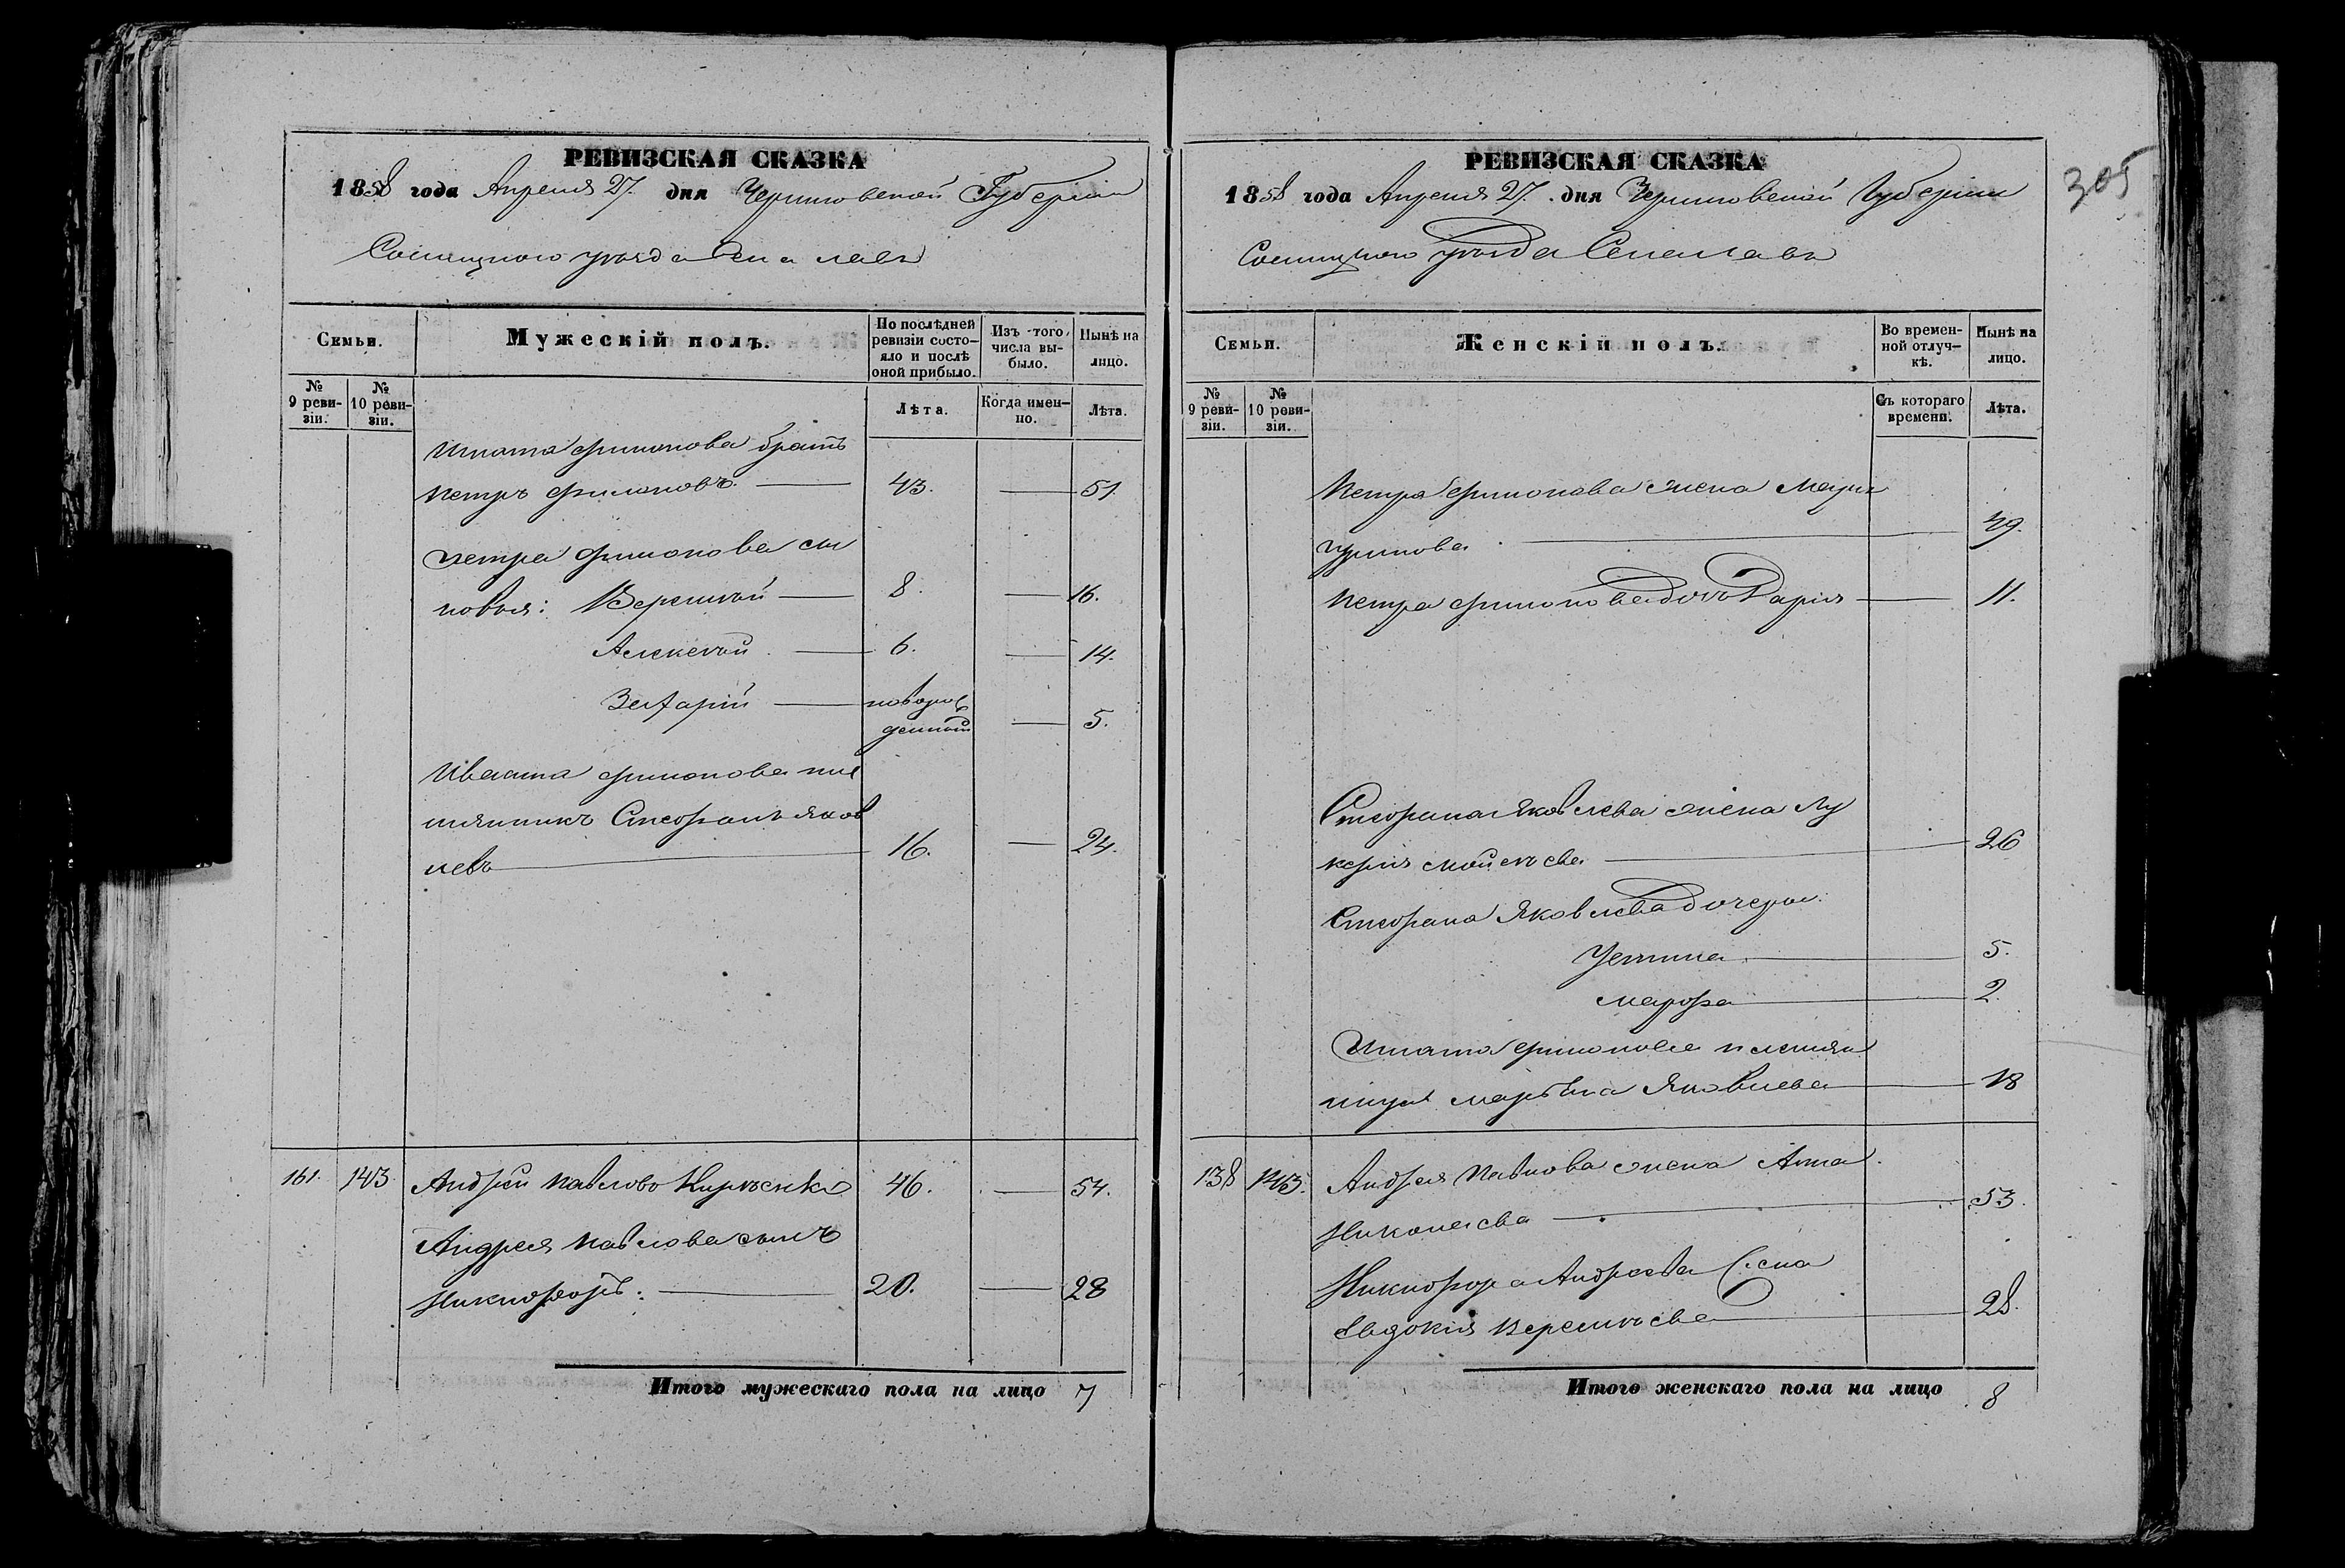 РЕВИЗСКАЯ СКАЗКА
1858 года Апреля 27. дня Черниговской Губерніи
Сосницкого уезда Села
Семьи.
Мужескій полъ.
По послѣдней ревизіи состояло и послѣ оной прибыло.
Изъ того числа выбыло.
Нынѣ на лицо.
№ 9 ревизіи.
№ 10 ревизіи.
Лѣта.
Когда именно.
Лѣта.
Игната филонова братъ
петръ филоновъ. 43. 51.
петра филонова сы
новья: 8. 16.
Алексей 6. 14.
Захарій новорож
денный 5.
Игната филонова пле
мянникъ Стефанъ Яков
левъ 16. 24.
161. 143. Андрей павловъ 46. 54.
Андрея павлова сынъ
Никифоръ. 20. 28
Итого мужескаго пола на лицо 7
РЕВИЗСКАЯ СКАЗКА
305
1858 года Апреля 27. дня Черниговской Губерніи
Сосницкого уезда Села
Семьи.
Женскій полъ.
Во временной отлучкѣ.
Нынѣ на лицо.
№ 9 ревизіи.
№ 10 ревизіи.
Съ котораго времени.
Лѣта.
петра филонова жена
49.
петра филонова дочь Дарія 11.
Стефана Яковлева жена Лу
керія моисеева 26
Стефана Яковлева дочери
Устина 5.
марфа 2.
Игната филонова племян
ница Яковлева 18
138 143. Андрея павлова жена Анна
Николаева 53.
Никифора Андреева жена
Евдокия 28.
Итого женскаго пола на лицо 8